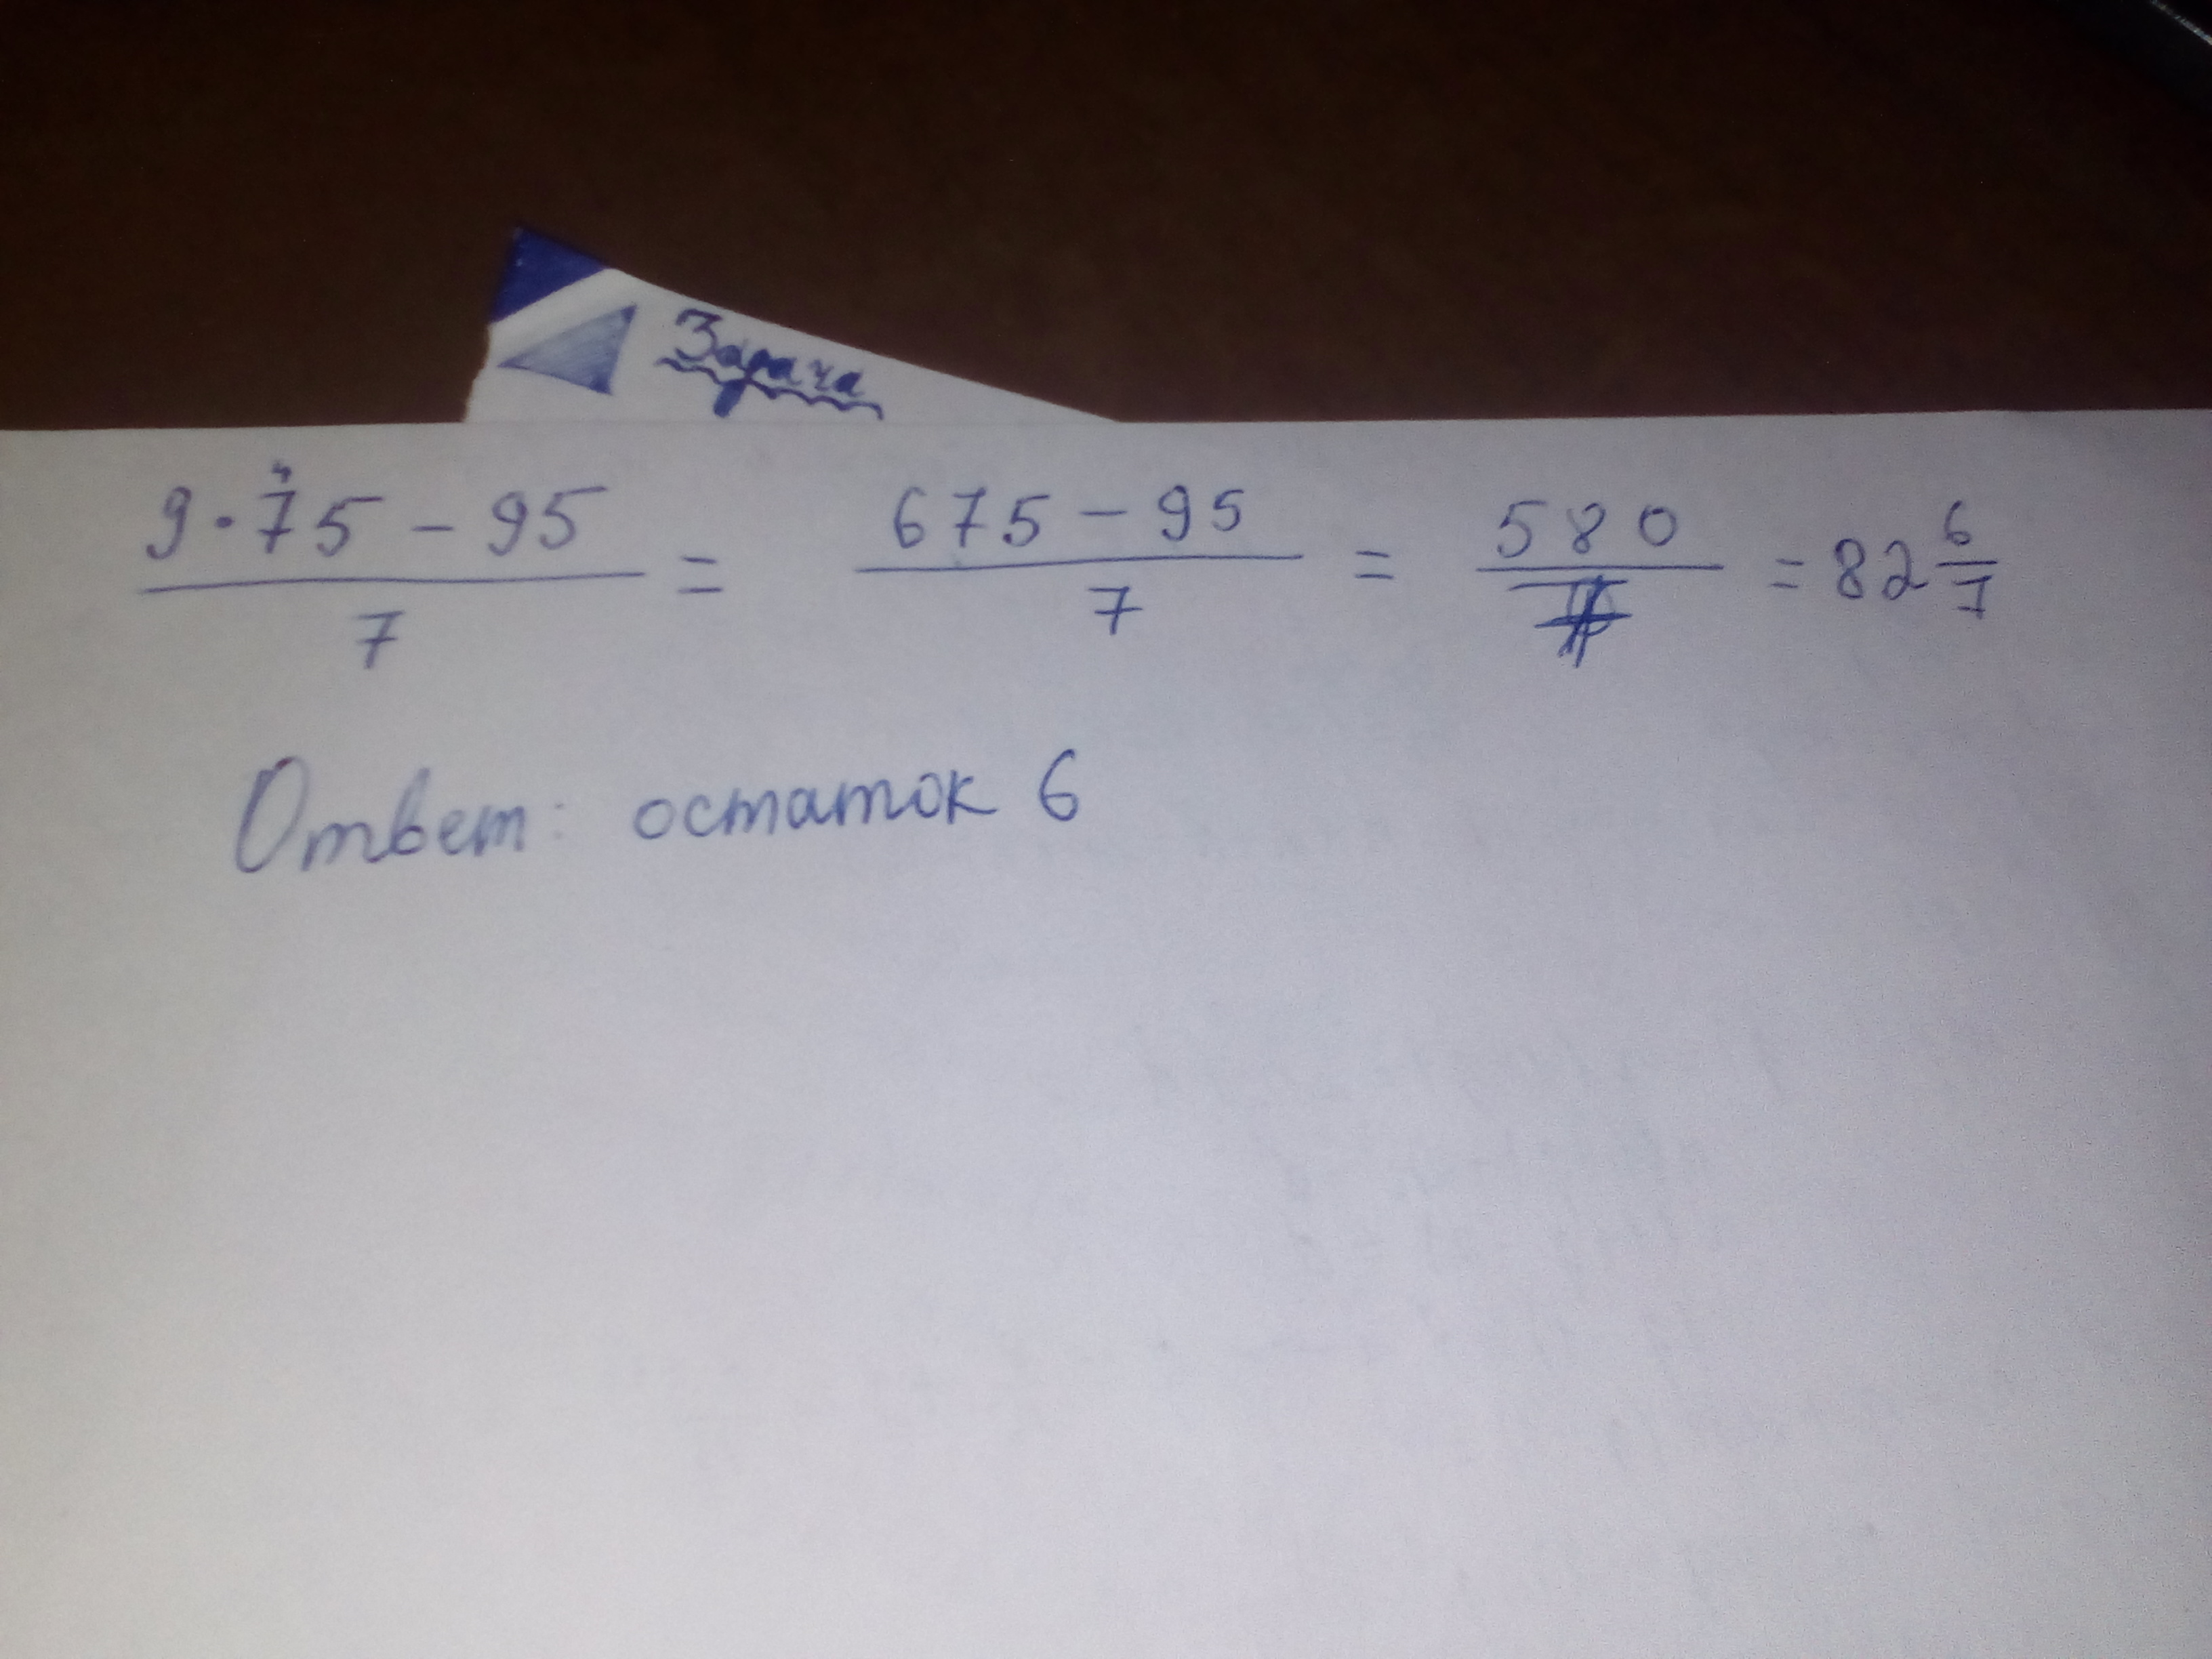 Задача
9·75 - 95 / 7 = 675 - 95 / 7 = 580 / 7 = 82 6/7
Ответ: остаток 6